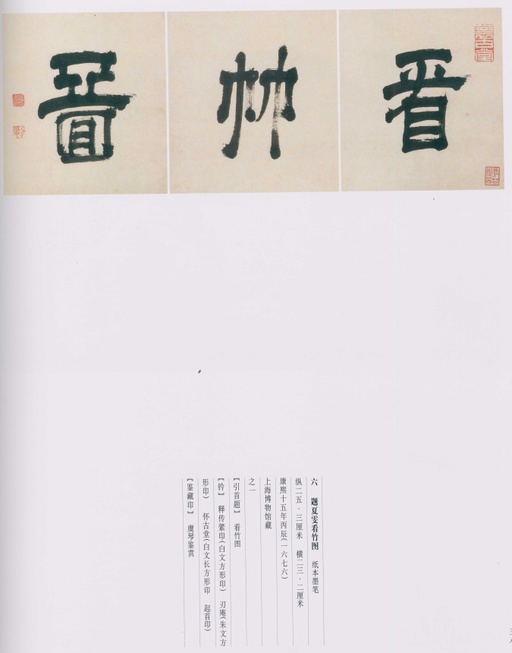 看竹图
六　题夏雯看竹图　纸本墨笔
纵二五·三厘米　横二三·二厘米
康熙十五年丙辰（一六七六）
上海博物馆藏
之一
【引首题】　看竹图
【钤】　释传綮印（白文方形印）　刃庵（朱文方
形印）　怀古堂（白文长方形印　起首印）
【鉴藏印】　虞琴鉴赏